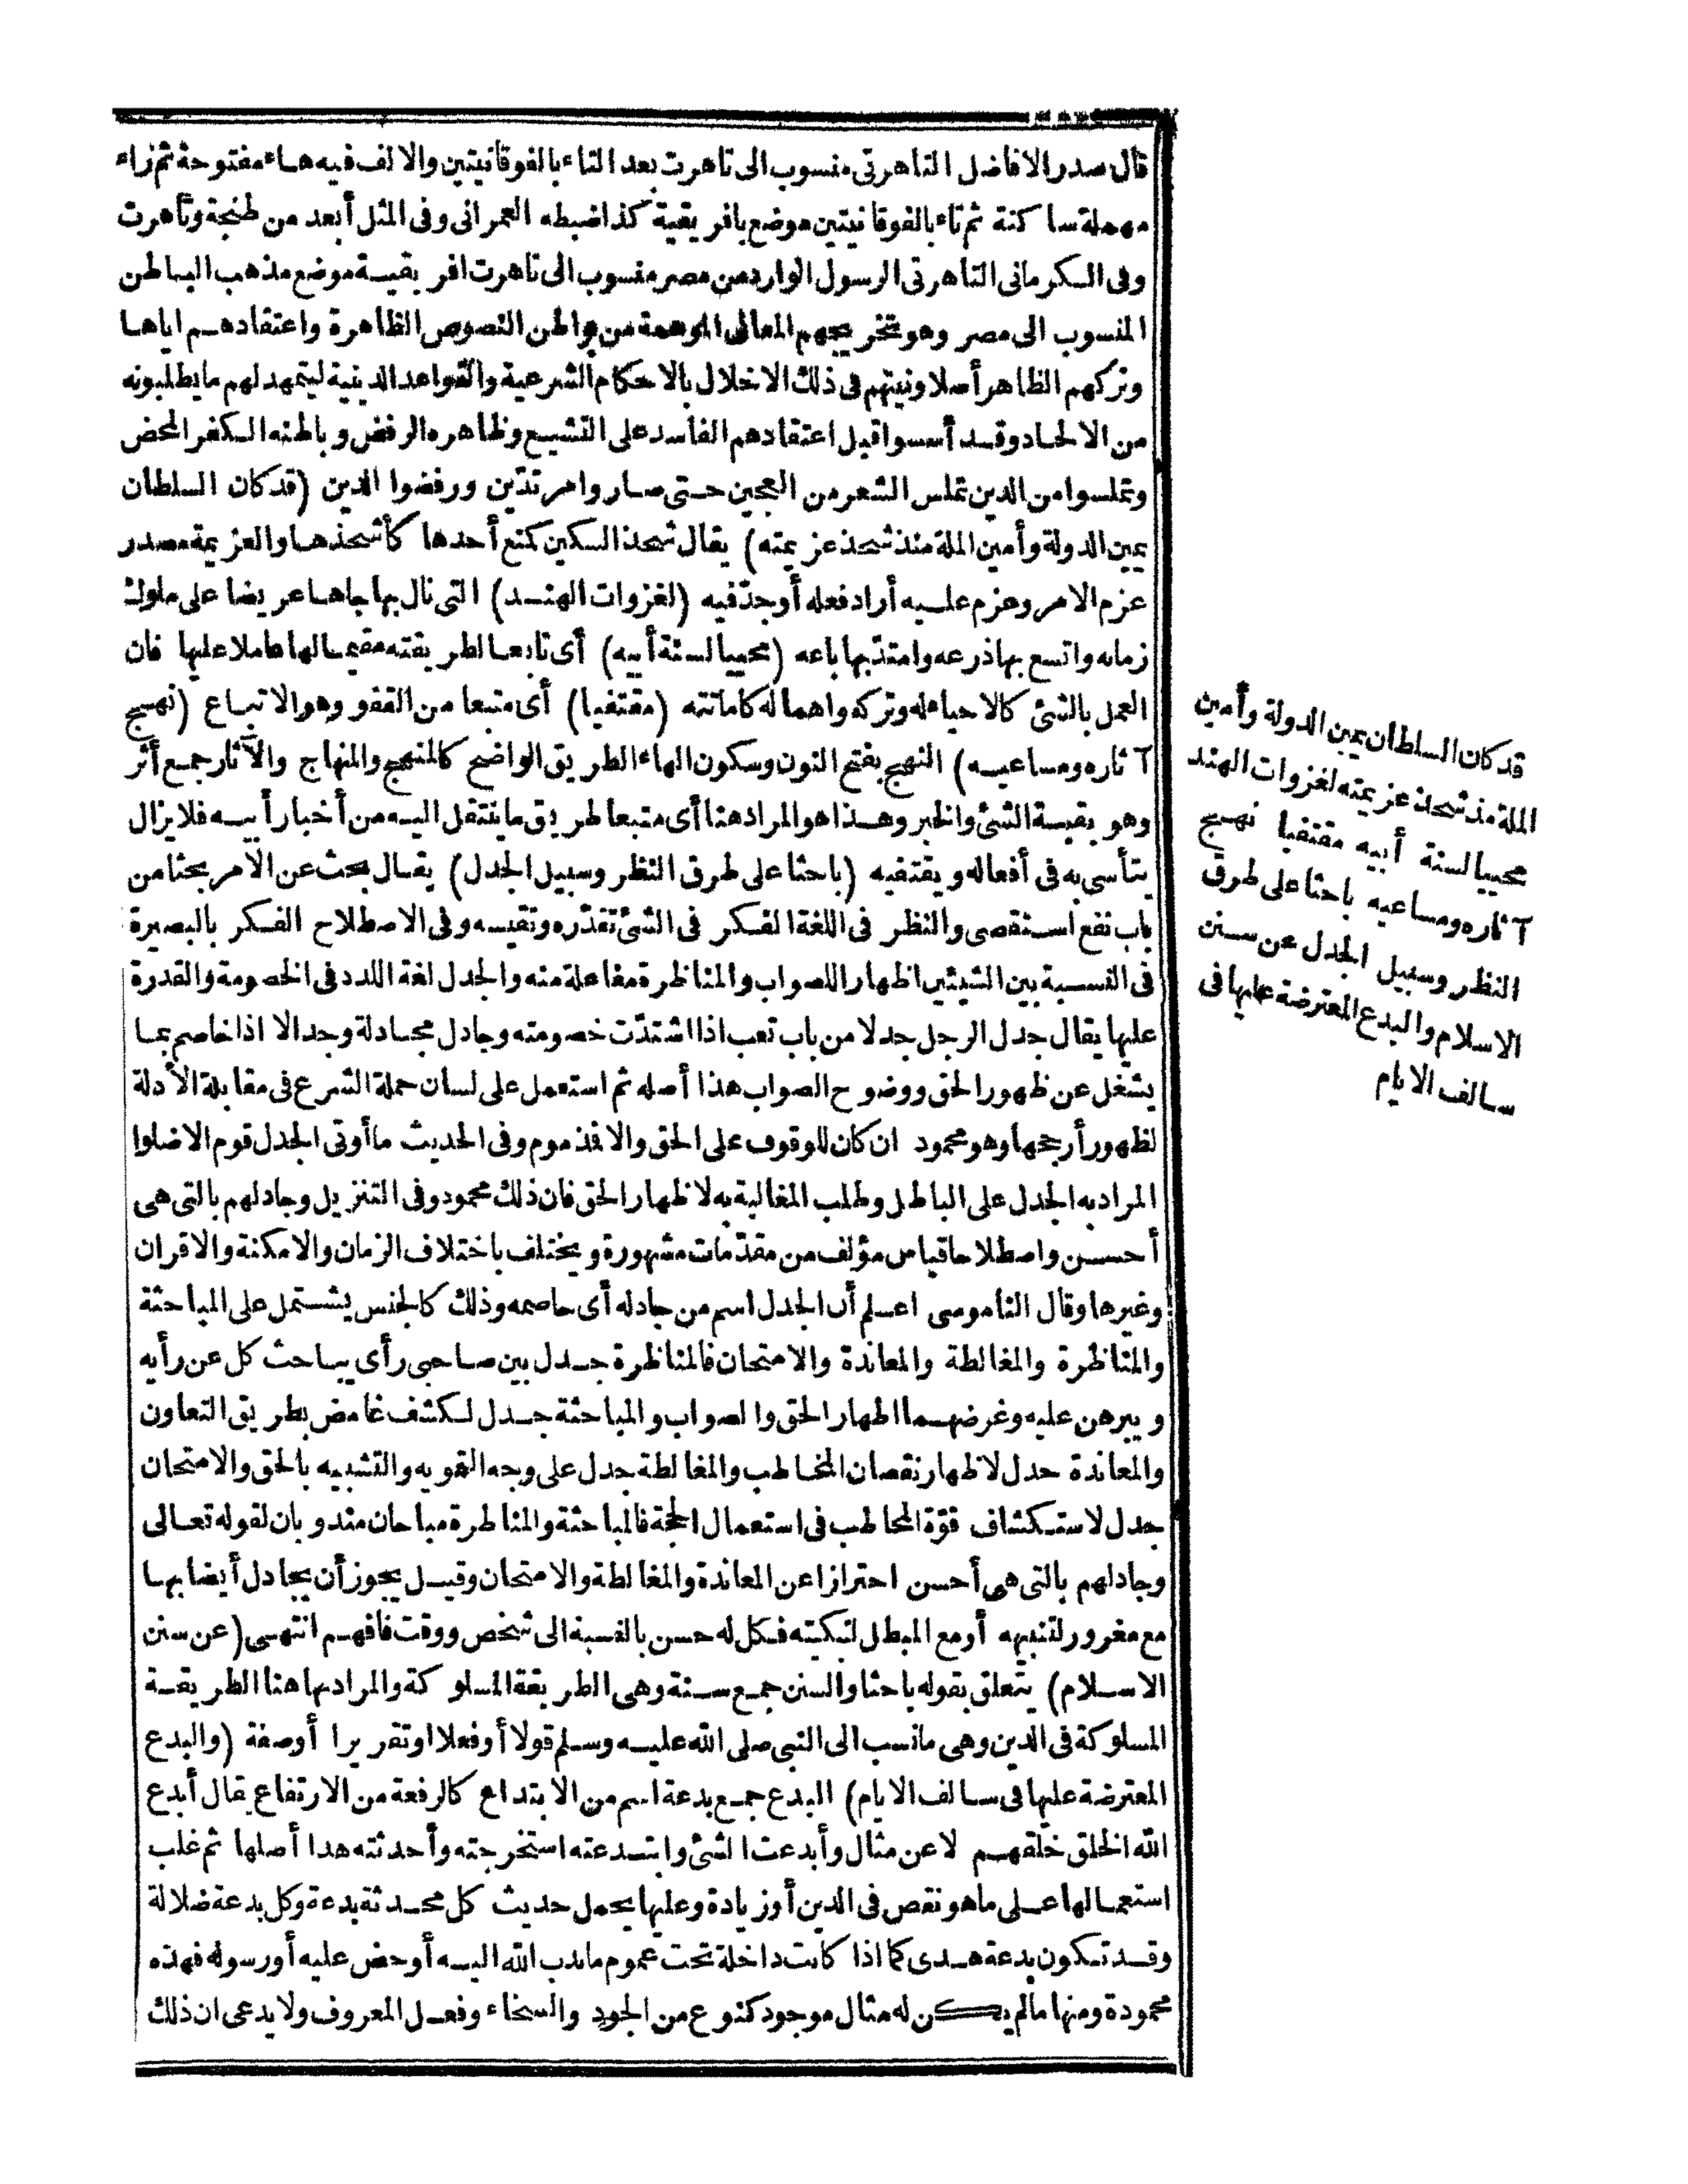 قال صدر الافاضل التاهرتى منسوب الى تاهرت بعد التاء بالفوقانيتين والالف فيه هاء مفتوحة ثم زاء
مهملة ساكنة ثم تاء بالفوقانيتين موضع بافريقية كذا ضبطه العمرانى وفى المثل أبعد من طنجة وتاهرت
وفى الكرمانى التاهرتى الرسول الوارد من مصر منسوب الى تاهرت افريقية موضع مذهب الباطن
المنسوب الى مصر وهو تخريجهم المعانى الموهمة من بواطن النصوص الظاهرة واعتقادهم اياها
وتركهم الظاهر أصلا ونيتهم فى ذلك الاخلال بالاحكام الشرعية والقواعد الدينية ليتمهد لهم ما يطلبونه
من الالحاد وقد أسسوا قبل اعتقادهم الفاسد على التشيع وظاهره الرفض وباطنه الكفر المحض
وتملسوا من الدين تملس الشعر من العجين حتى صاروا مرتدّين ورفضوا الدين (قد كان السلطان
يمين الدولة وأمين الملة منذ شحذ عزيمته) يقال شحذ السكين كمنع أحدها كأشحذها والعزيمة مصدر
عزم الامر وعزم عليه أراد فعله أو جدّ فيه (لغزوات الهند) التى نال بها جاها عريضا على ملوك
زمانه واتسع بها ذرعه وامتدّ بها باعه (محييا لسنة أبيه) أى تابعا لطريقته مقيما لها عاملا عليها فان
العمل بالشئ كالاحياء له وتركه واهماله كاماتته (مقتفيا) أى متبعا من القفو وهو الاتباع (نهج
آثاره ومساعيه) النهج بفتح النون وسكون الهاء الطريق الواضح كالمنهج والمنهاج والآثار جمع أثر
وهو بقية الشئ والخبر وهذا هو المراد هنا أى متبعا طريق ما ينتقل اليه من أخبار أبيه فلا يزال
يتأسى به فى أفعاله ويقتفيه (باحثا على طرق النظر وسبيل الجدل) يقال بحث عن الامر بحثا من
باب نفع استقصى والنظر فى اللغة الفكر فى الشئ تقدّره وتقيسه وفى الاصطلاح الفكر بالبصيرة
فى النسبة بين الشيئين اظهارا للصواب والمناظرة مفاعلة منه والجدل لغة اللدد فى الخصومة والقدرة
عليها يقال جدل الرجل جدلا من باب تعب اذا اشتدّت خصومته وجادل مجادلة وجدالا اذا خاصم بما
يشغل عن ظهور الحق ووضوح الصواب هذا أصله ثم استعمل على لسان حملة الشرع فى مقابلة الأدلة
لظهور أرجحها وهو محمود ان كان للوقوف على الحق والا فمذموم وفى الحديث ما أوتى الجدل قوم الا ضلوا
المراد به الجدل على الباطل وطلب المغالبة به لا ظهار الحق فان ذلك محمود وفى التنزيل وجادلهم بالتى هى
أحسن واصطلاحا قياس مؤلف من مقدّمات مشهورة ويختلف باختلاف الزمان والامكنة والاقران
وغيرها وقال الناموسى اعلم أن الجدل اسم من جادله أى خاصمه وذلك كالجنس يشتمل على المباحثة
والمناظرة والمغالطة والمعاندة والامتحان فالمناظرة جدل بين صاحبى رأى يباحث كل عن رأيه
ويبرهن عليه وغرضهما اظهار الحق والصواب والمباحثة جدل لكشف غامض بطريق التعاون
والمعاندة جدل لاظهار نقصان المخاطب والمغالطة جدل على وجه التمويه والتشبيه بالحق والامتحان
جدل لاستكشاف قوّة المخاطب فى استعمال الحجة فالمباحثة والمناظرة مباحان مندوبان لقوله تعالى
وجادلهم بالتى هى أحسن احترازا عن المعاندة والمغالطة والامتحان وقيل يجوز أن يجادل أيضا بها
مع مغرور لتنبيهه أو مع المبطل لتبكيته فكل له حسن بالنسبة الى شخص ووقت فافهم انتهى (عن سنن
الاسلام) يتعلق بقوله باحثا والسنن جمع سنة وهى الطريقة المسلوكة والمراد بها هنا الطريقة
المسلوكة فى الدين وهى ما نسب الى النبى صلى الله عليه وسلم قولا أو فعلا او تقريرا أو صفة (والبدع
المعترضة عليها فى سالف الايام) البدع جمع بدعة اسم من الابتداع كالرفعة من الارتفاع يقال أبدع
الله الخلق خلقهم لا عن مثال وأبدعت الشئ وابتدعته استخرجته وأحدثته هدا أصلها ثم غلب
استعمالها على ما هو نقص فى الدين أو زيادة وعليها يحمل حديث كل محدثة بدعة وكل بدعة ضلالة
وقد تكون بدعة هدى كما اذا كانت داخلة تحت عموم ما ندب الله اليه أو حض عليه أو رسوله فهذه
محمودة ومنها ما لم يكن له مثال موجود كنوع من الجود والسخاء وفعل المعروف ولا يدعى ان ذلك
قد كان السلطان يمين الدولة وأمين
الملة مذ شحذ عزيمته لغزوات الهند
محييا لسنة أبيه مقتفيا نهج
آثاره ومساعيه باحثا على طرق
النظر وسبيل الجدل عن سنن
الاسلام والبدع المعترضة عليها فى
سالف الايام